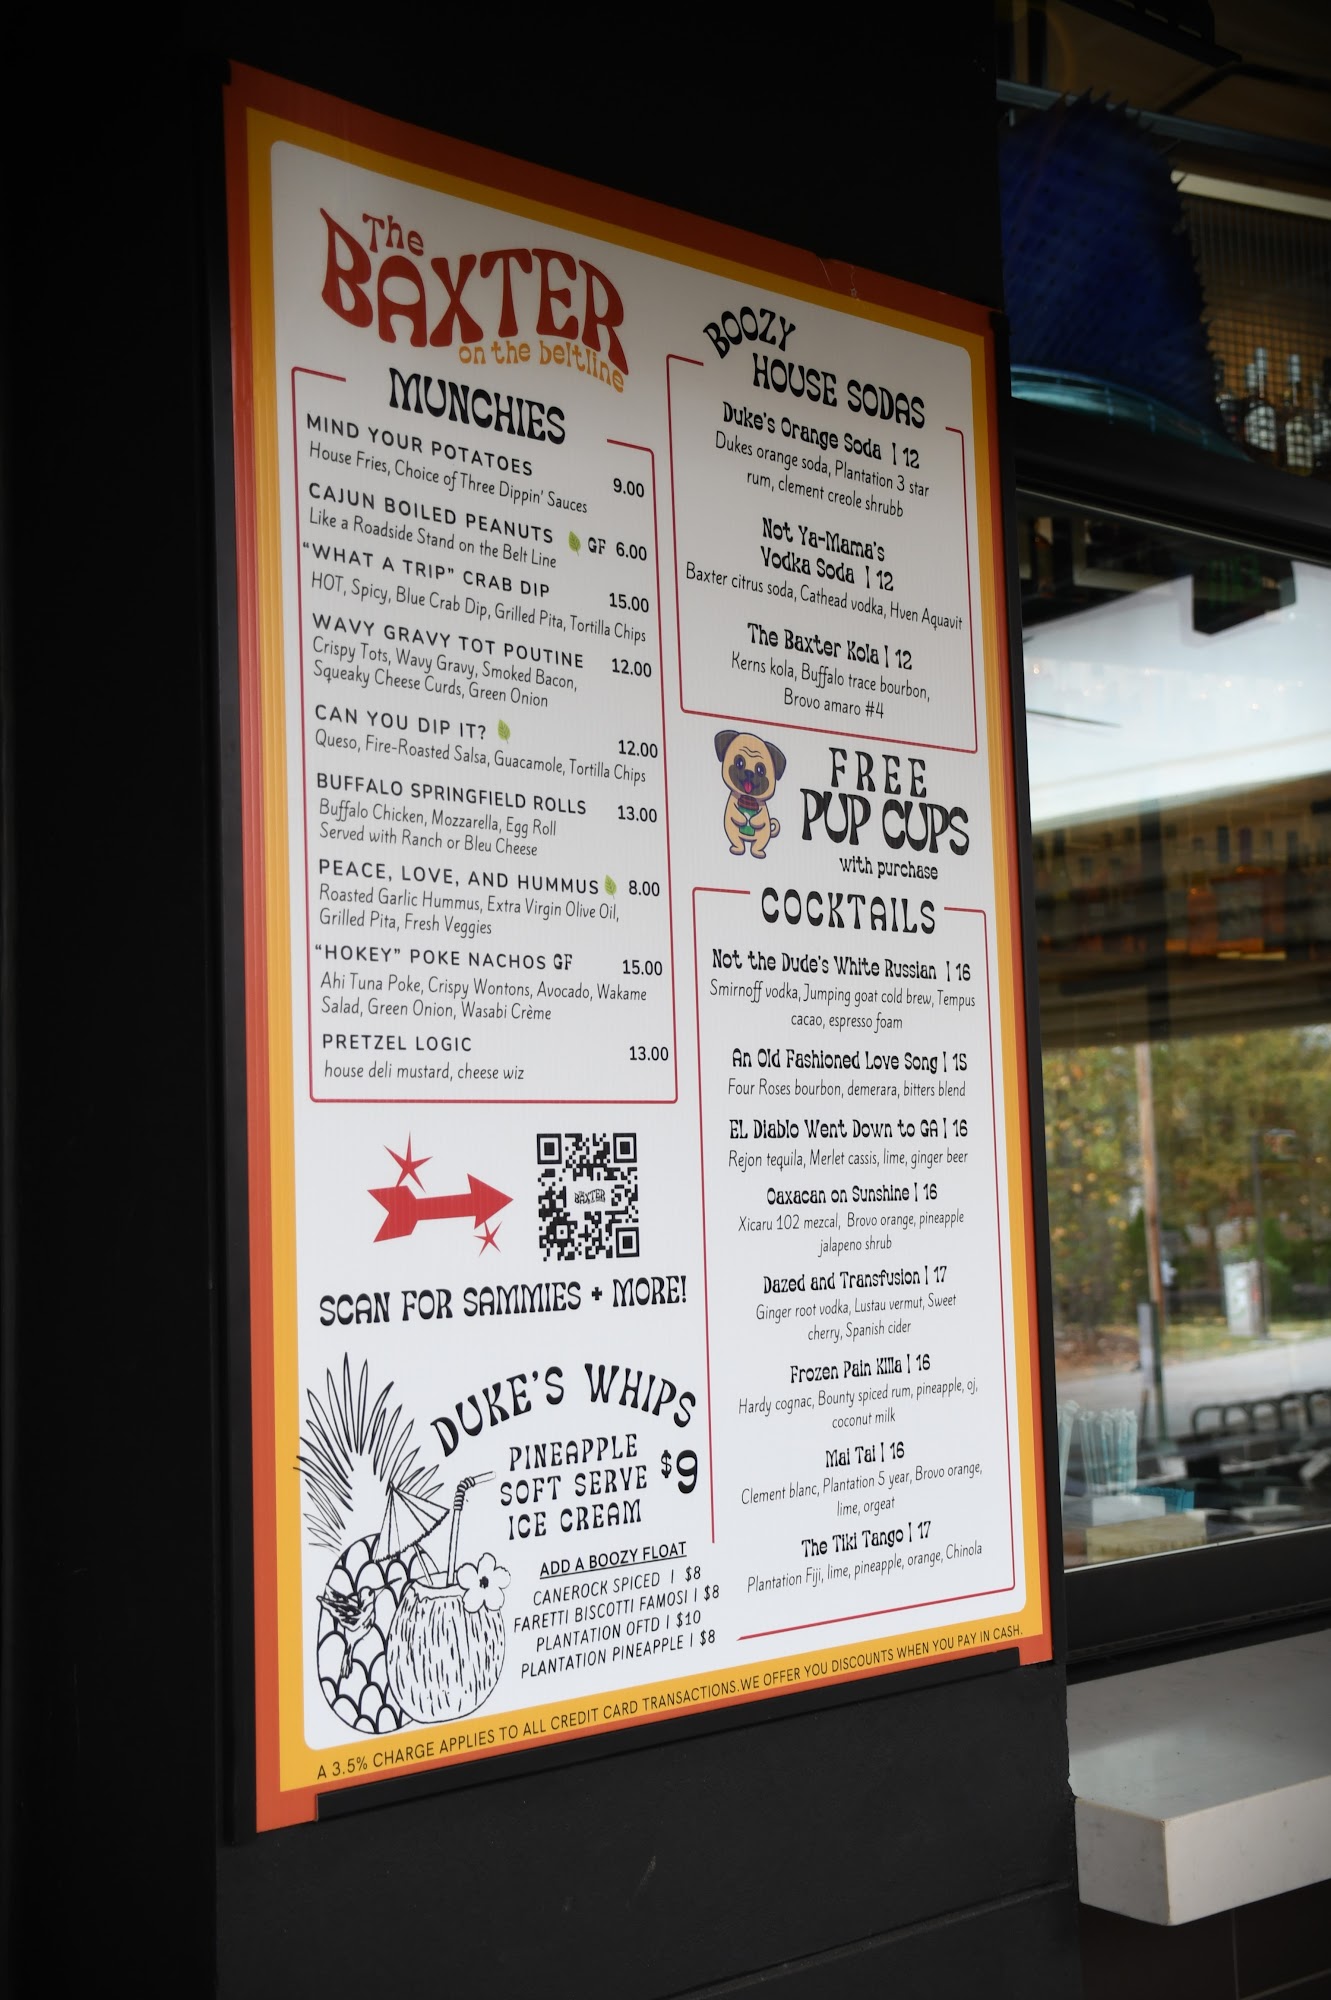 The
BAXTER
on the beltline
MUNCHIES
MIND YOUR POTATOES 9.00
House Fries, Choice of Three Dippin' Sauces
CAJUN BOILED PEANUTS GF 6.00
Like a Roadside Stand on the Belt Line
"WHAT A TRIP" CRAB DIP 15.00
HOT, Spicy, Blue Crab Dip, Grilled Pita, Tortilla Chips
WAVY GRAVY TOT POUTINE 12.00
Crispy Tots, Wavy Gravy, Smoked Bacon,
Squeaky Cheese Curds, Green Onion
CAN YOU DIP IT? 12.00
Queso, Fire-Roasted Salsa, Guacamole, Tortilla Chips
BUFFALO SPRINGFIELD ROLLS 13.00
Buffalo Chicken, Mozzarella, Egg Roll
Served with Ranch or Bleu Cheese
PEACE, LOVE, AND HUMMUS 8.00
Roasted Garlic Hummus, Extra Virgin Olive Oil,
Grilled Pita, Fresh Veggies
"HOKEY" POKE NACHOS GF 15.00
Ahi Tuna Poke, Crispy Wontons, Avocado, Wakame
Salad, Green Onion, Wasabi Crème
PRETZEL LOGIC 13.00
house deli mustard, cheese wiz
BAXTER
SCAN FOR SAMMIES + MORE!
DUKE'S WHIPS
PINEAPPLE
SOFT SERVE
ICE CREAM
$9
ADD A BOOZY FLOAT
CANEROCK SPICED | $8
FARETTI BISCOTTI FAMOSI | $8
PLANTATION OFTD | $10
PLANTATION PINEAPPLE | $8
BOOZY
HOUSE SODAS
Duke's Orange Soda | 12
Dukes orange soda, Plantation 3 star
rum, clement creole shrubb
Not Ya-Mama's
Vodka Soda | 12
Baxter citrus soda, Cathead vodka, Hven Aquavit
The Baxter Kola | 12
Kerns kola, Buffalo trace bourbon,
Brovo amaro #4
FREE
PUP CUPS
with purchase
COCKTAILS
Not the Dude's White Russian | 16
Smirnoff vodka, Jumping goat cold brew, Tempus
cacao, espresso foam
An Old Fashioned Love Song | 15
Four Roses bourbon, demerara, bitters blend
EL Diablo Went Down to GA | 16
Rejon tequila, Merlet cassis, lime, ginger beer
Oaxacan on Sunshine | 16
Xicaru 102 mezcal, Brovo orange, pineapple
jalapeno shrub
Dazed and Transfusion | 17
Ginger root vodka, Lustau vermut, Sweet
cherry, Spanish cider
Frozen Pain Killa | 16
Hardy cognac, Bounty spiced rum, pineapple, oj,
coconut milk
Mai Tai | 16
Clement blanc, Plantation 5 year, Brovo orange,
lime, orgeat
The Tiki Tango | 17
Plantation Fiji, lime, pineapple, orange, Chinola
A 3.5% CHARGE APPLIES TO ALL CREDIT CARD TRANSACTIONS.WE OFFER YOU DISCOUNTS WHEN YOU PAY IN CASH.